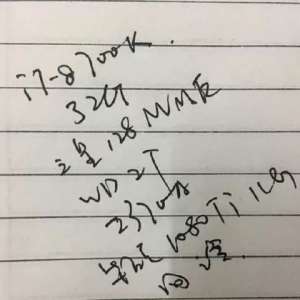 i7-8700K
32G
三星 128 NVME
WD 2T
Z370
1080Ti 11G